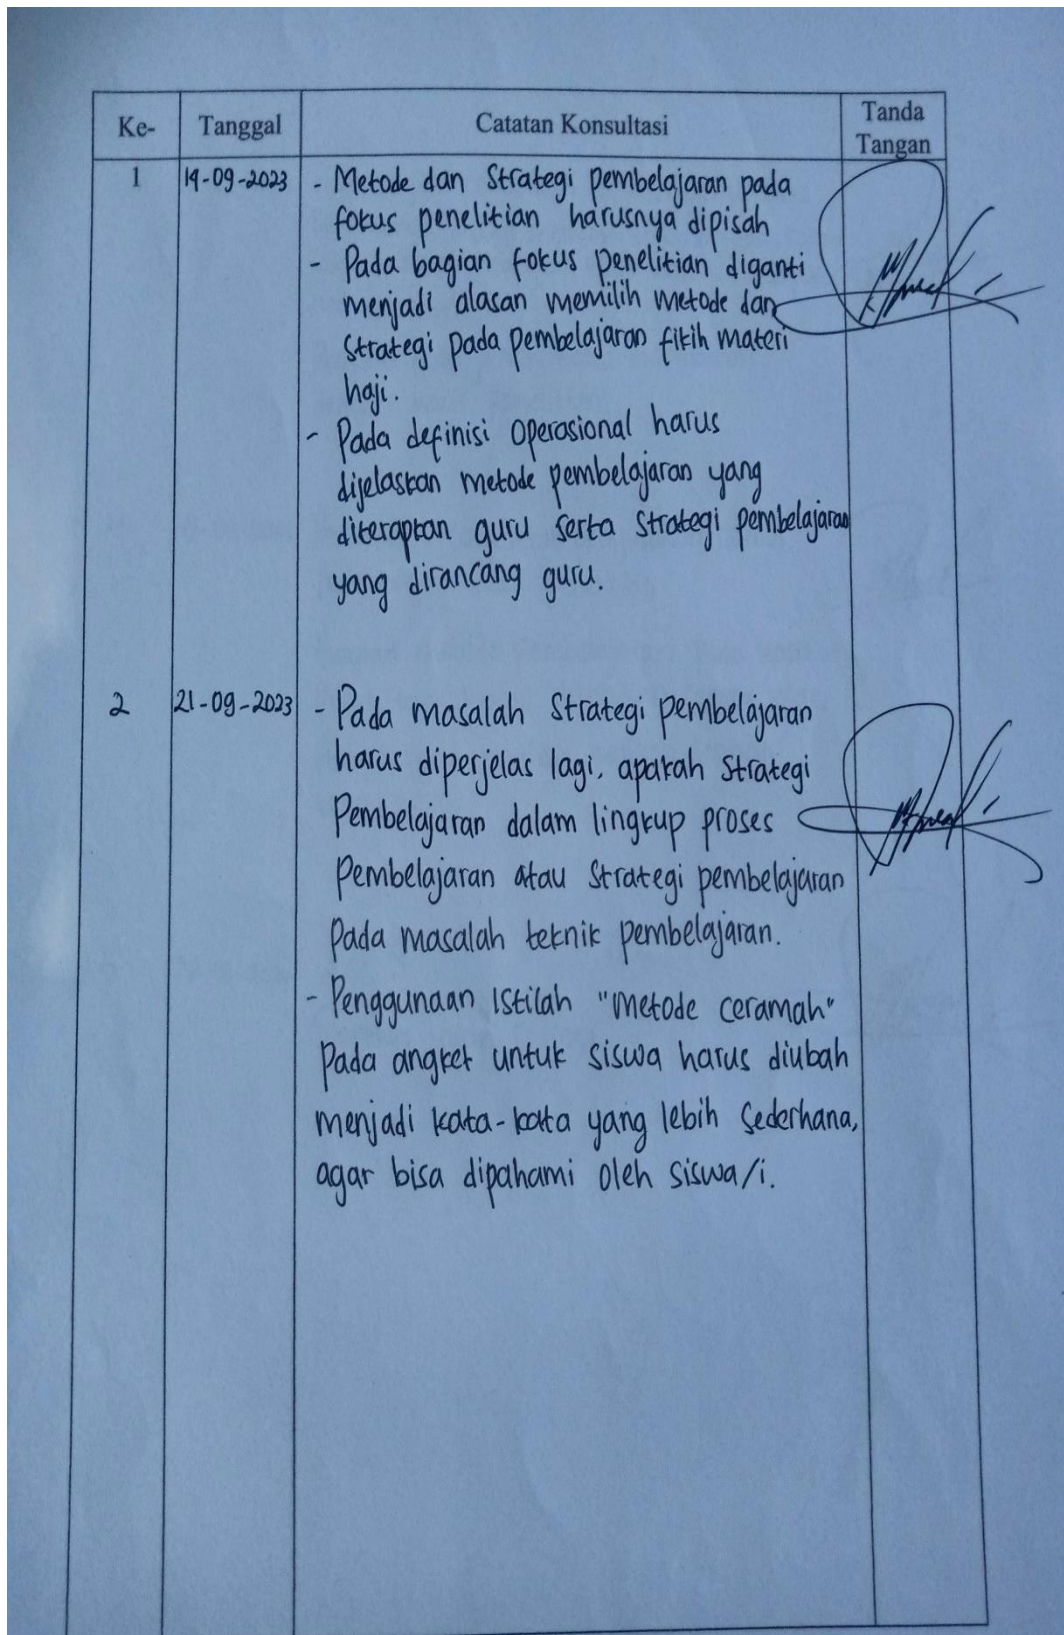 Ke- Tanggal Catatan Konsultasi Tanda Tangan
1 19-09-2023 - Metode dan Strategi pembelajaran pada
fokus penelitian harusnya dipisah
- Pada bagian fokus penelitian diganti
menjadi alasan memilih metode dan
Strategi pada pembelajaran fikih materi
haji.
- Pada definisi Operasional harus
dijelaskan metode pembelajaran yang
diterapkan guru serta Strategi pembelajaran
yang dirancang guru.
2 21-09-2023 - Pada masalah Strategi pembelajaran
harus diperjelas lagi, apakah Strategi
Pembelajaran dalam lingkup proses
Pembelajaran atau Strategi pembelajaran
Pada masalah teknik pembelajaran.
- Penggunaan Istilah "metode ceramah"
Pada angket untuk siswa harus diubah
menjadi kata-kata yang lebih Sederhana,
agar bisa dipahami oleh siswa/i.